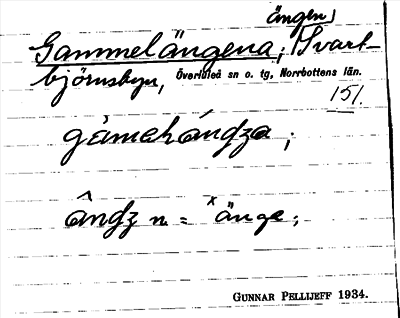 ängen,
Gammelängena; Svart-
björnsbyn, Överluleå sn o. tg, Norrbottens län.
151.
gàmelándza;
ândz n = ˣänge;
GUNNAR PELLIJEFF 1934.